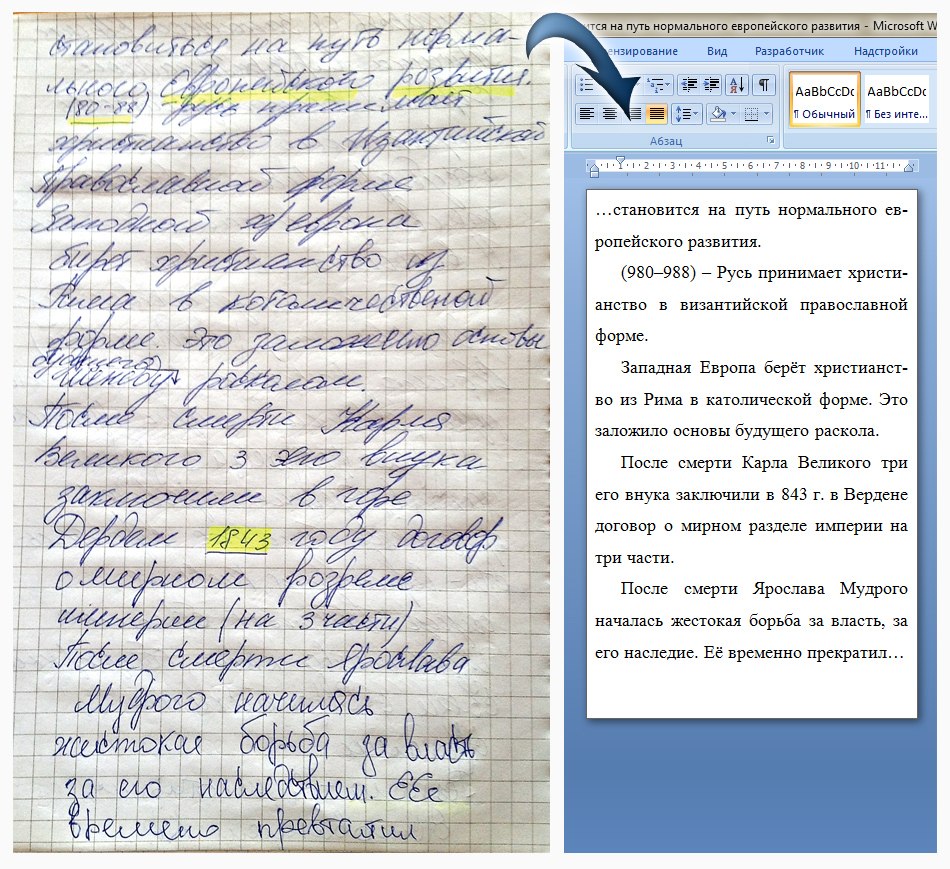 становиться на путь норма-
льного Европейского розвития.
(980-988) Русь принимает
христианство в Византийской
Православной форме
Западной
берет христианство из
Рима в
форме. Это заложенно основы
будущего
После смерти Карла
Великого 3 его внука
заключили в
1843 году договор
о мирном розделе
империи (на 3 части)
После смерти Ярослава
Мудрого началась
жестокая борьба за власть
за его наследством. ЕЕе
времено
ится на путь нормального европейского развития - Microsoft W
ензирование Вид Разработчик Надстройки
AaBbCcDc AaBbCcDc
¶ Обычный ¶ Без инте...
Абзац
1 2 3 4 5 6 7 8 9 10 11
…становится на путь нормального ев-
ропейского развития.
(980–988) – Русь принимает христи-
анство в византийской православной
форме.
Западная Европа берёт христианст-
во из Рима в католической форме. Это
заложило основы будущего раскола.
После смерти Карла Великого три
его внука заключили в 843 г. в Вердене
договор о мирном разделе империи на
три части.
После смерти Ярослава Мудрого
началась жестокая борьба за власть, за
его наследие. Её временно прекратил…